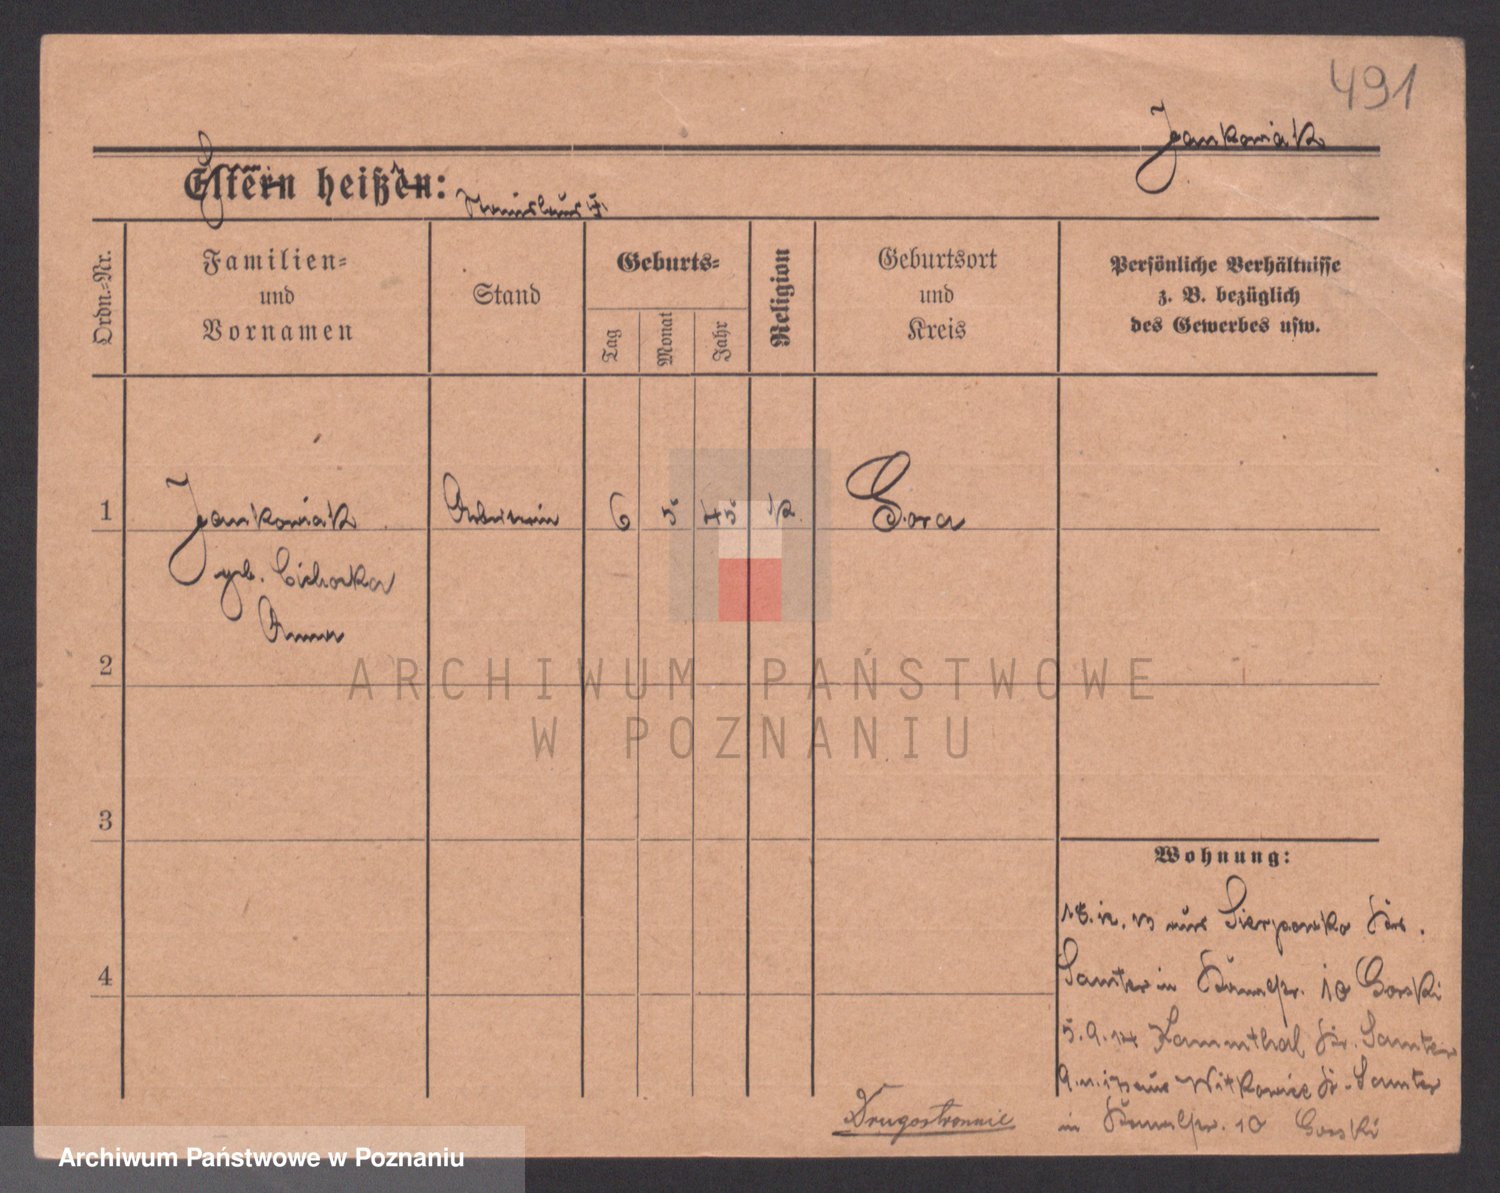 491
Jankowiak
Eltern heißen:
Ordn.-Nr.
Familien-
und
Vornamen
Stand
Geburts-
Tag
Monat
Jahr
Religion
Geburtsort
und
Kreis
Persönliche Verhältnisse
z. B. bezüglich
des Gewerbes usw.
1
Jankowiak
6
5
45
k.
Gora
geb. Cichocka
Anna
2
3
4
Wohnung:
Samter in 10 Gorski
5.9.14 Kammthal Kr. Samter
aus Witkowice Kr. Samter
in 10 Gorski
Drugostronnie
ARCHIWUM PAŃSTWOWE
W POZNANIU
Archiwum Państwowe w Poznaniu